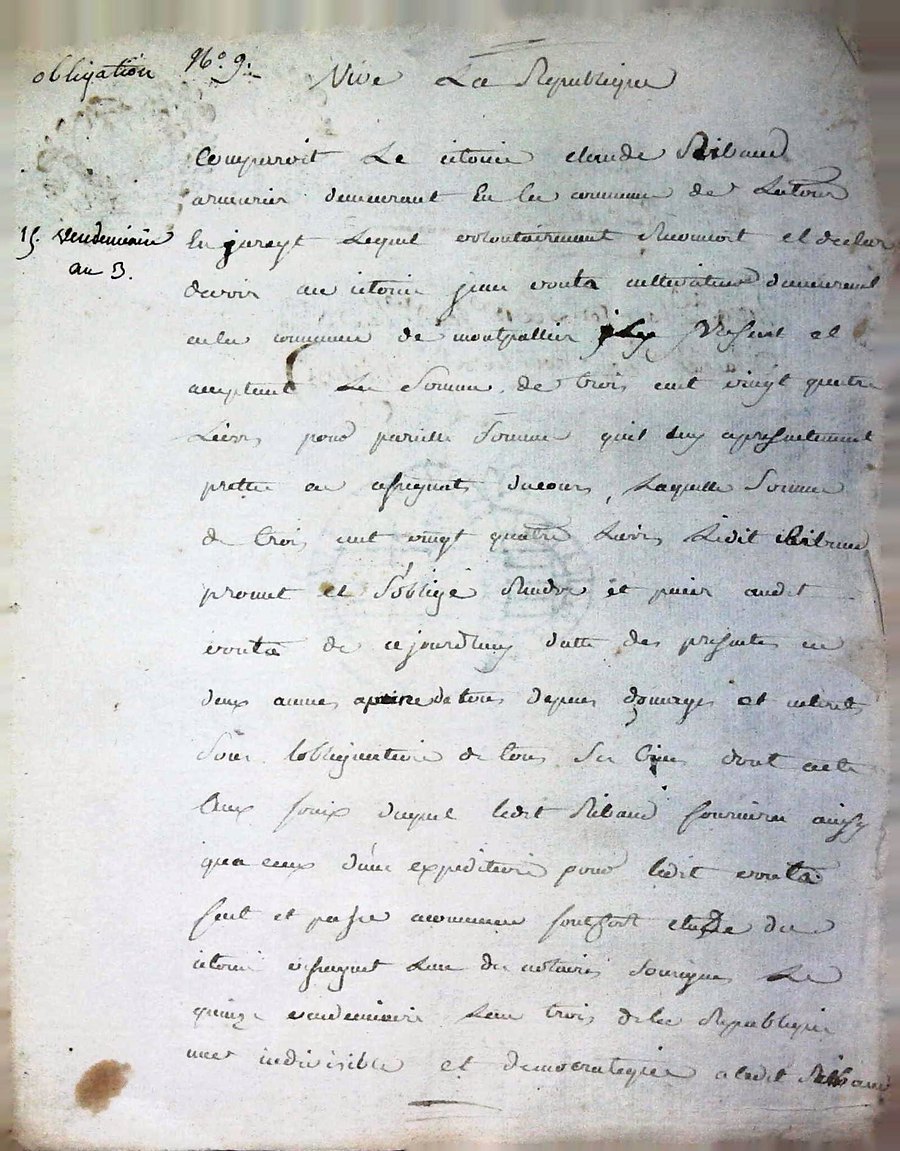 obligation N.o 9.
Vive La Republique
Comparoit Le citoien claude Ribaud
armurier demeurant En la commune de Latour
15. vendemiaire En jareyt Lequel vollontairement Reconnoit et declare
an 3. devoir au citoien jean crouta cultivateur demeurant
en la commune de montpallier present et
acceptant La Somme de trois cent vingt quatre
Livres pour pareille Somme quil luy a presentement
prettée en assignats ducours, Laquelle Somme
de trois cent vingt quatre Livres Ledit Ribaud
promet et s'oblige Rendre et paier audit
crouta de cejourdhuy datte des presentes en
deux années apeine detous depens domages et interets
Sous lobligation de tous Ses biens dont acte
Aux fraix duquel ledit Ribaud fournira ainsy
qua ceux d'une expedition pour ledit crouta
fait et passé acommune fontfort etude du
citoien Lun des notaires Sousignés Le
quinze vendemiaire Lan trois dela Republique
une indivisible et democratique a ledit Ribaud